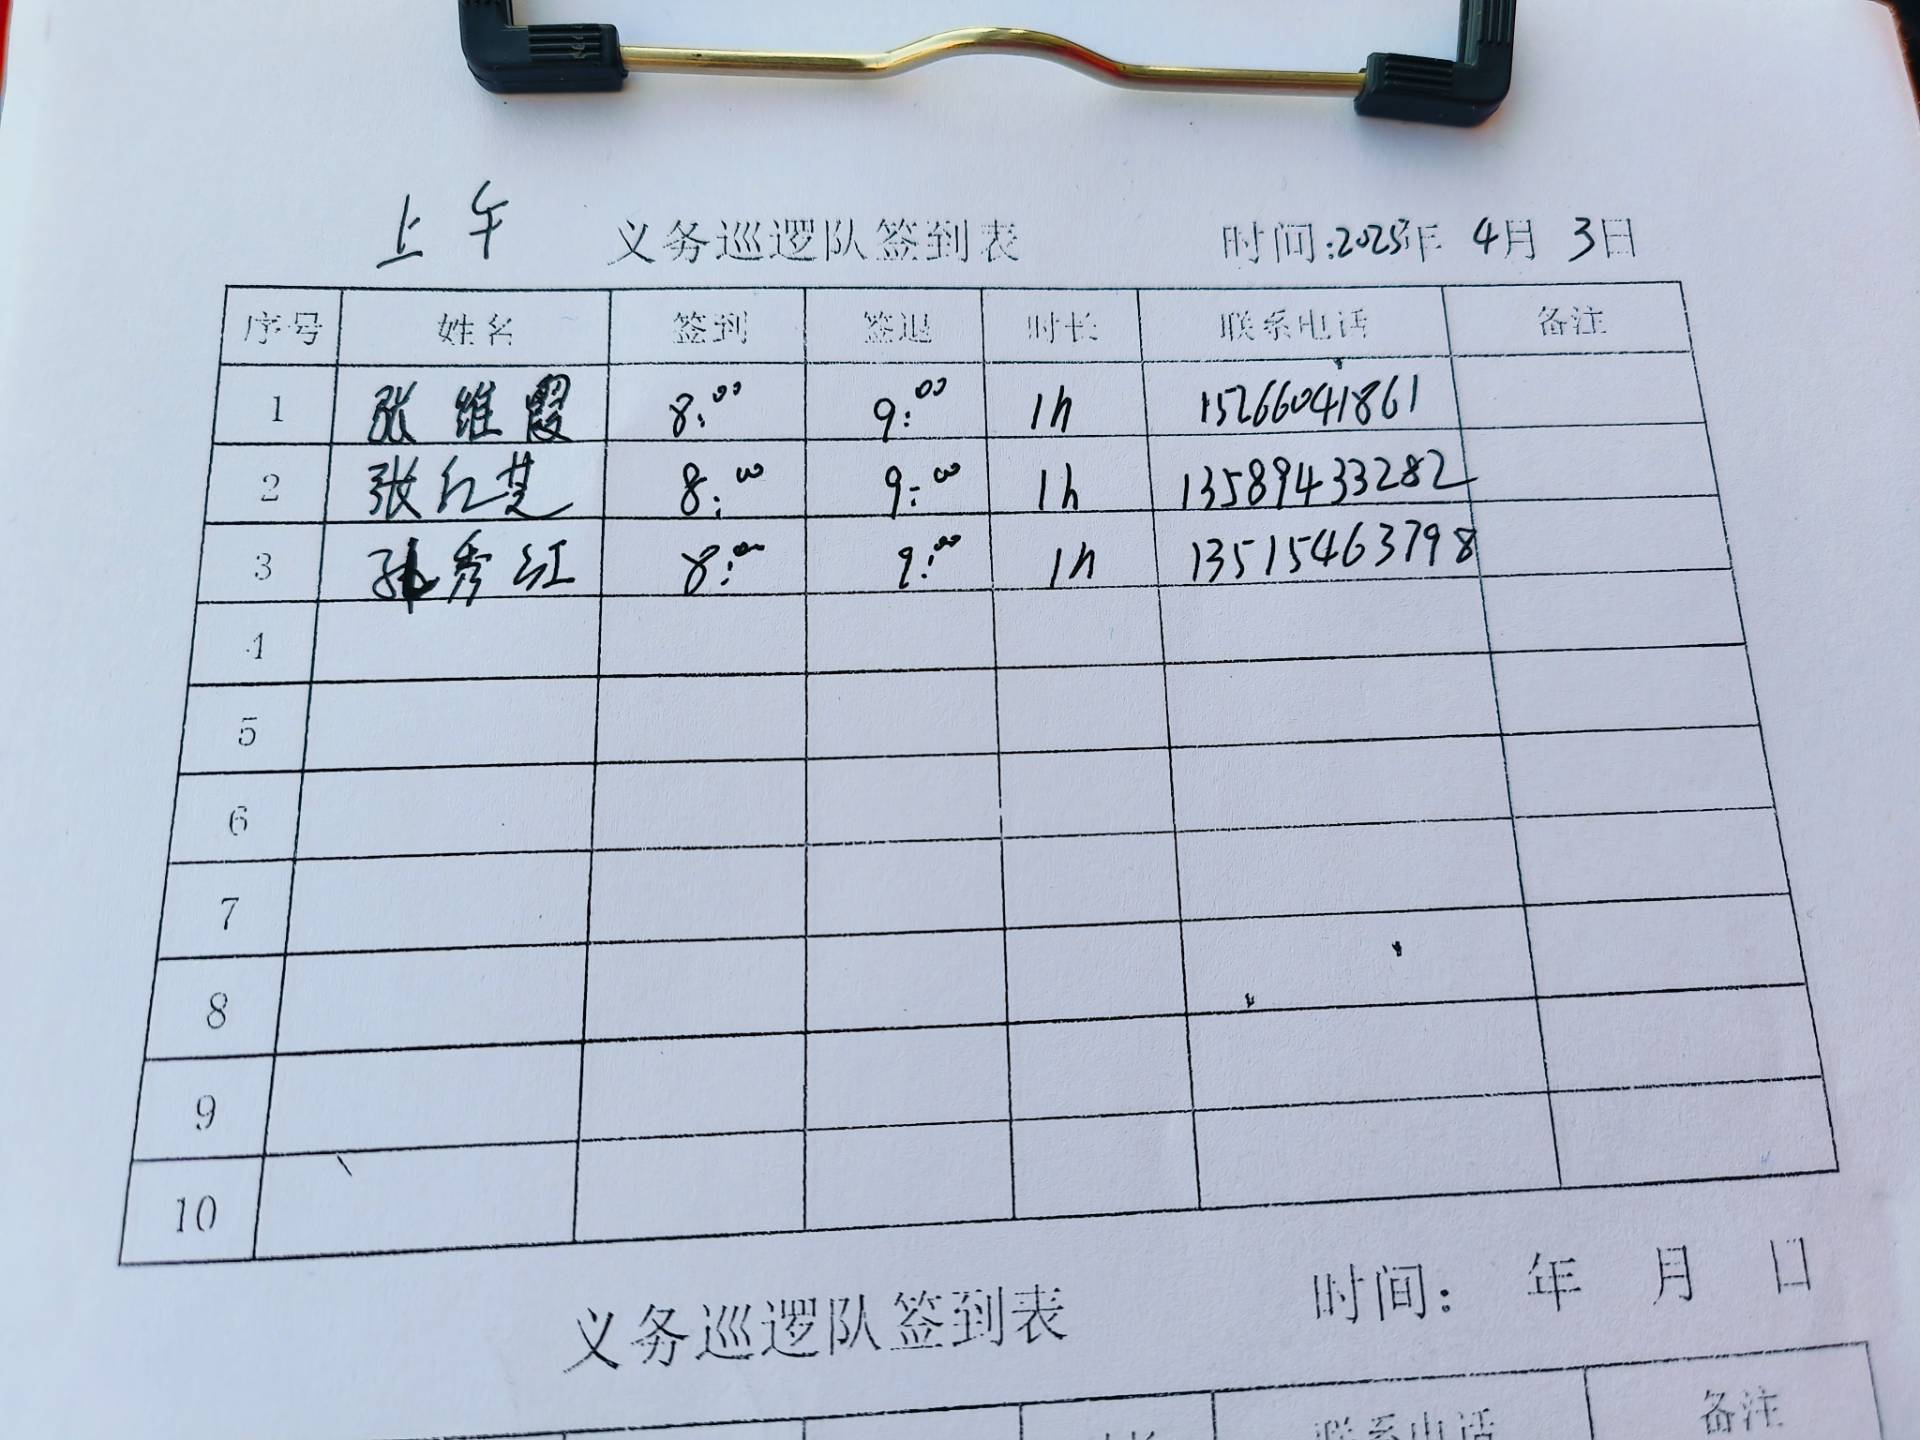 上午 义务巡逻队签到表 时间:2025年 4月 3日
序号 姓名 签到 签退 时长 联系电话 备注
1 张维霞 8:00 9:00 1h 15266041861
2 张红芝 8:00 9:00 1h 13589433282
3 孙秀红 8:00 9:00 1h 13515463798
4
5
6
7
8
9
10
义务巡逻队签到表 时间: 年 月 日
联系电话 备注